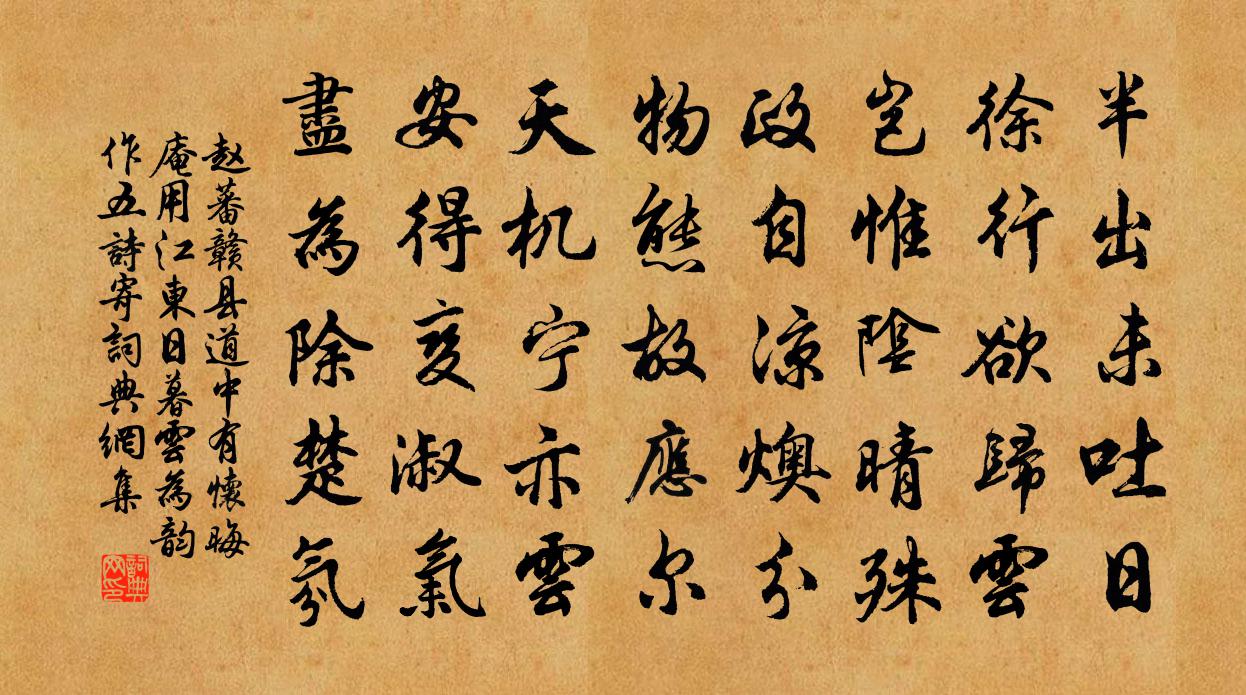 半出未吐日
徐行欲歸雲
岂惟陰晴殊
政自凉燠分
物態故應尔
天机宁亦雲
安得变淑氣
盡為除楚氛
赵蕃赣县道中有懷晦
庵用江東日暮雲為韵
作五詩寄詞典網集
詞典网印